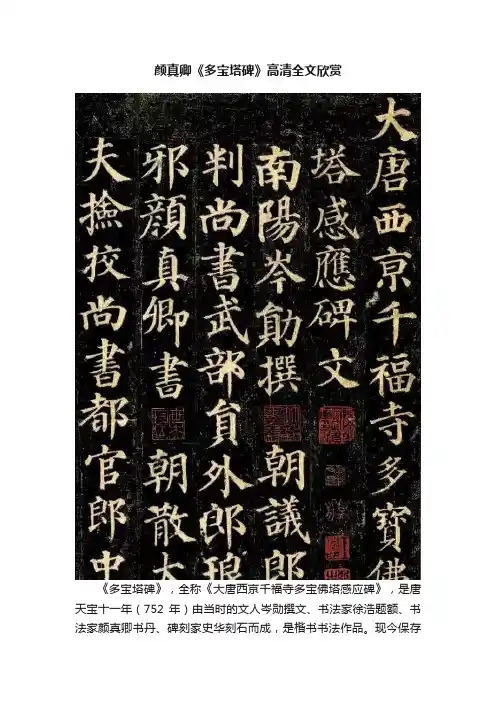 颜真卿《多宝塔碑》高清全文欣赏
大唐西亰千福寺多寳佛
塔感應碑文
南陽岑勛撰 朝議郎
判尚書武部貟外郎琅
邪顔真卿書 朝散大
夫撿挍尚書都官郎中
《多宝塔碑》，全称《大唐西京千福寺多宝佛塔感应碑》，是唐
天宝十一年（752 年）由当时的文人岑勋撰文、书法家徐浩题额、书
法家颜真卿书丹、碑刻家史华刻石而成，是楷书书法作品。现今保存